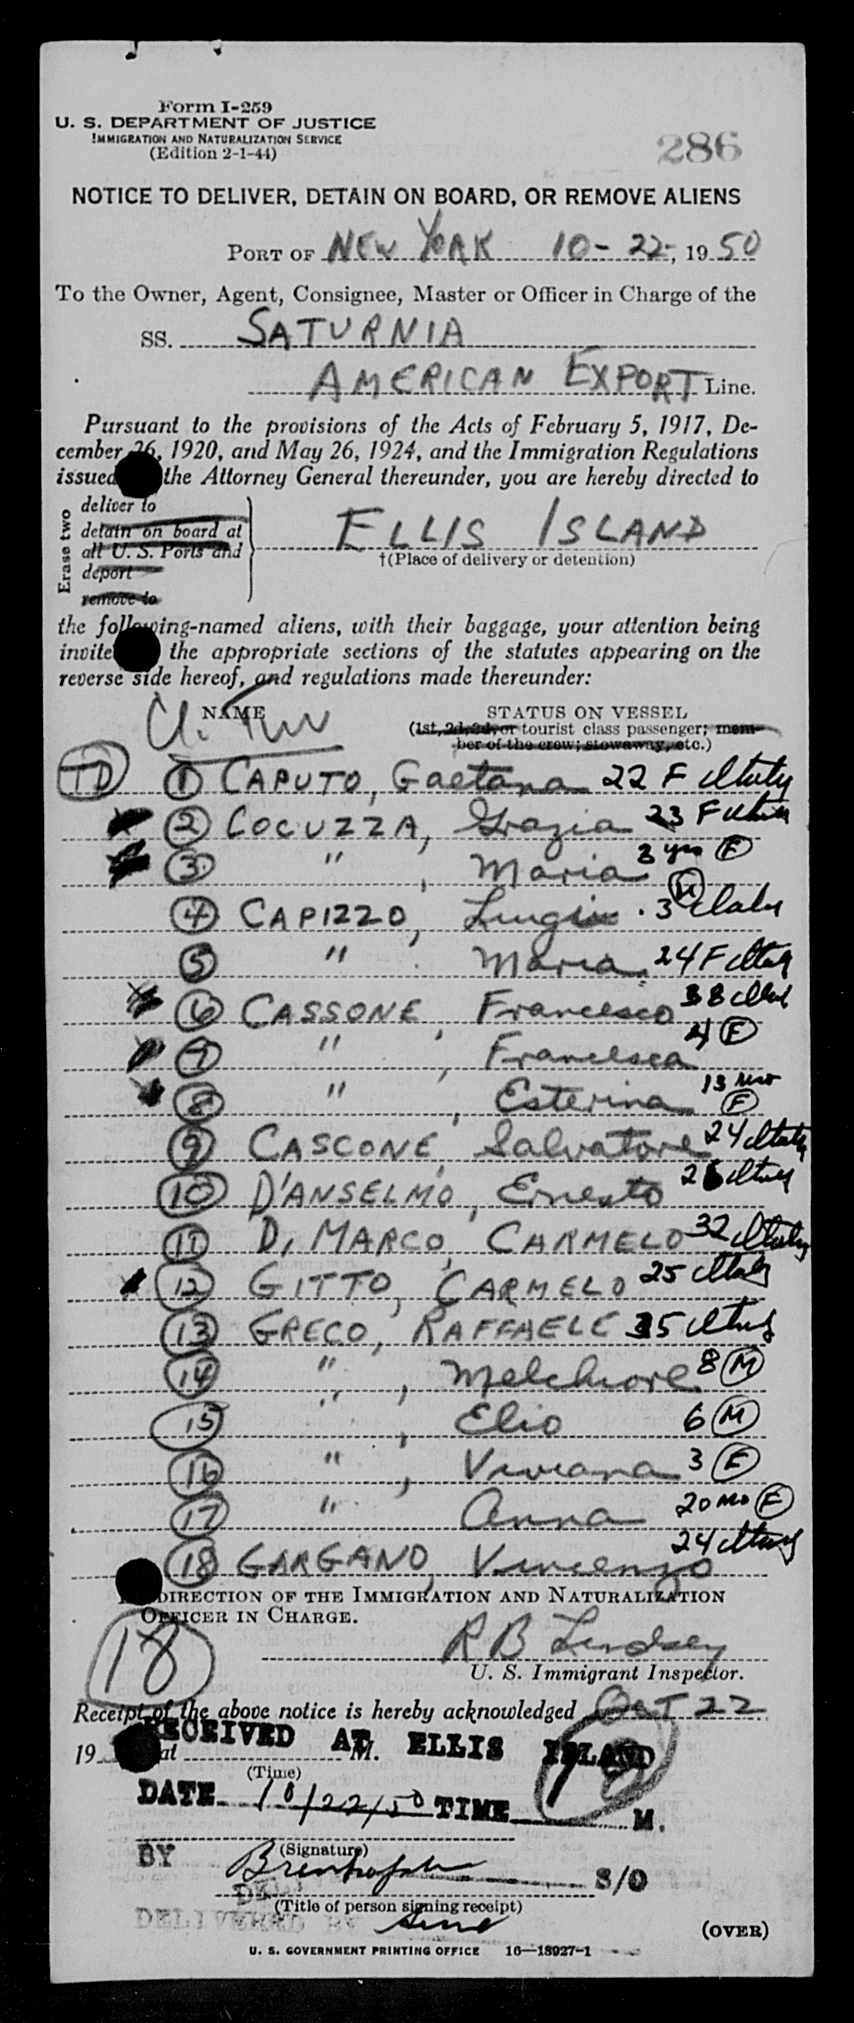 Form I-259
U. S. DEPARTMENT OF JUSTICE
IMMIGRATION AND NATURALIZATION SERVICE
(Edition 2-1-44)
286
NOTICE TO DELIVER, DETAIN ON BOARD, OR REMOVE ALIENS
PORT OF NEW YORK 10-22-, 1950
To the Owner, Agent, Consignee, Master or Officer in Charge of the
SS. SATURNIA
AMERICAN EXPORT Line.
Pursuant to the provisions of the Acts of February 5, 1917, De-
cember 26, 1920, and May 26, 1924, and the Immigration Regulations
issued the Attorney General thereunder, you are hereby directed to
Erase two
deliver to
detain on board at
all U. S. Ports and
deport
remove to
ELLIS ISLAND
†(Place of delivery or detention)
the following-named aliens, with their baggage, your attention being
invite the appropriate sections of the statutes appearing on the
reverse side hereof, and regulations made thereunder:
NAME STATUS ON VESSEL
(1st, 2d, 3d, or tourist class passenger; mem-
ber of the crew; stowaway, etc.)
TD 1 CAPUTO, Gaetana 22 F Italy
2 COCUZZA, Grazia 23 F
3 " , Maria 3 yrs F
4 CAPIZZO, 3 M Italy
5 " Maria 24 F Italy
6 CASSONE, Francesco 38
7 " , Francesca 4 F
8 " , Esterina 13 mos F
9 CASCONE, Salvatore 24 Italy
10 D'ANSELMO, Ernesto Italy
11 DI MARCO, CARMELO 32 Italy
12 GITTO, CARMELO 25 Italy
13 GRECO, RAFFAELE 35 Italy
14 " , Melchiore 8 M
15 " , Elio 6 M
16 " , Viviana 3 F
17 " Anna 20 mo F
18 GARGANO, Vincenzo 24 Italy
DIRECTION OF THE IMMIGRATION AND NATURALIZATION
OFFICER IN CHARGE.
18
R B Lindsey
U. S. Immigrant Inspector.
Receipt of the above notice is hereby acknowledged OCT 22
19 at M.
(Time)
RECEIVED AT ELLIS ISLAND
18
DATE 10/22/50 TIME M.
(Signature)
BY S/O
(Title of person signing receipt)
DELIVERED BY
(OVER)
U. S. GOVERNMENT PRINTING OFFICE 16—18927-1